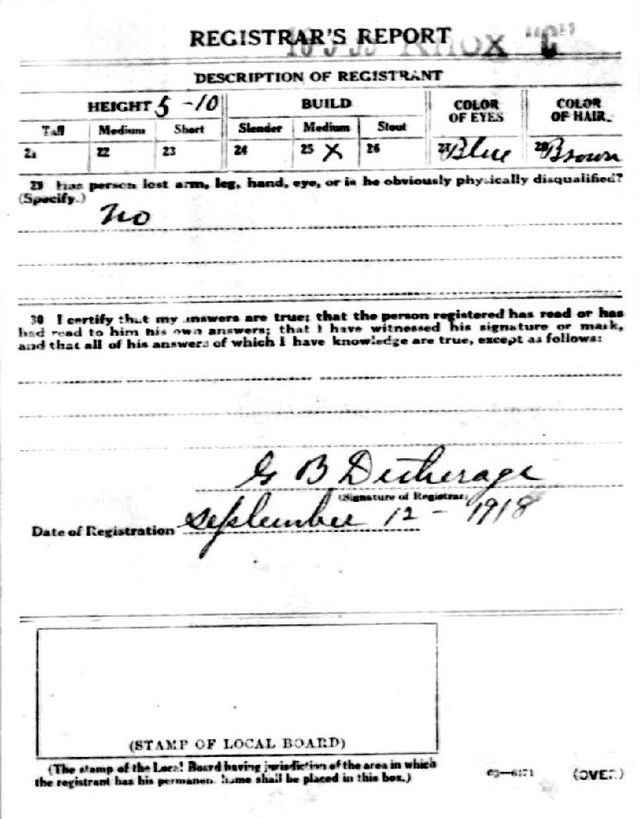 REGISTRAR'S REPORT
Knox "C"
DESCRIPTION OF REGISTRANT
HEIGHT 5-10 BUILD COLOR OF EYES COLOR OF HAIR
Tall Medium Short Slender Medium Stout
21 22 23 24 25 X 26 27 Blue 28 Brown
29 Has person lost arm, leg, hand, eye, or is he obviously physically disqualified?
(Specify.) No
30 I certify that my answers are true; that the person registered has read or has
had read to him his own answers; that I have witnessed his signature or mark,
and that all of his answers of which I have knowledge are true, except as follows:
G B Detherage
(Signature of Registrar)
Date of Registration September 12 - 1918
(STAMP OF LOCAL BOARD)
(The stamp of the Local Board having jurisdiction of the area in which
the registrant has his permanent home shall be placed in this box.)
03—6171 (OVER)